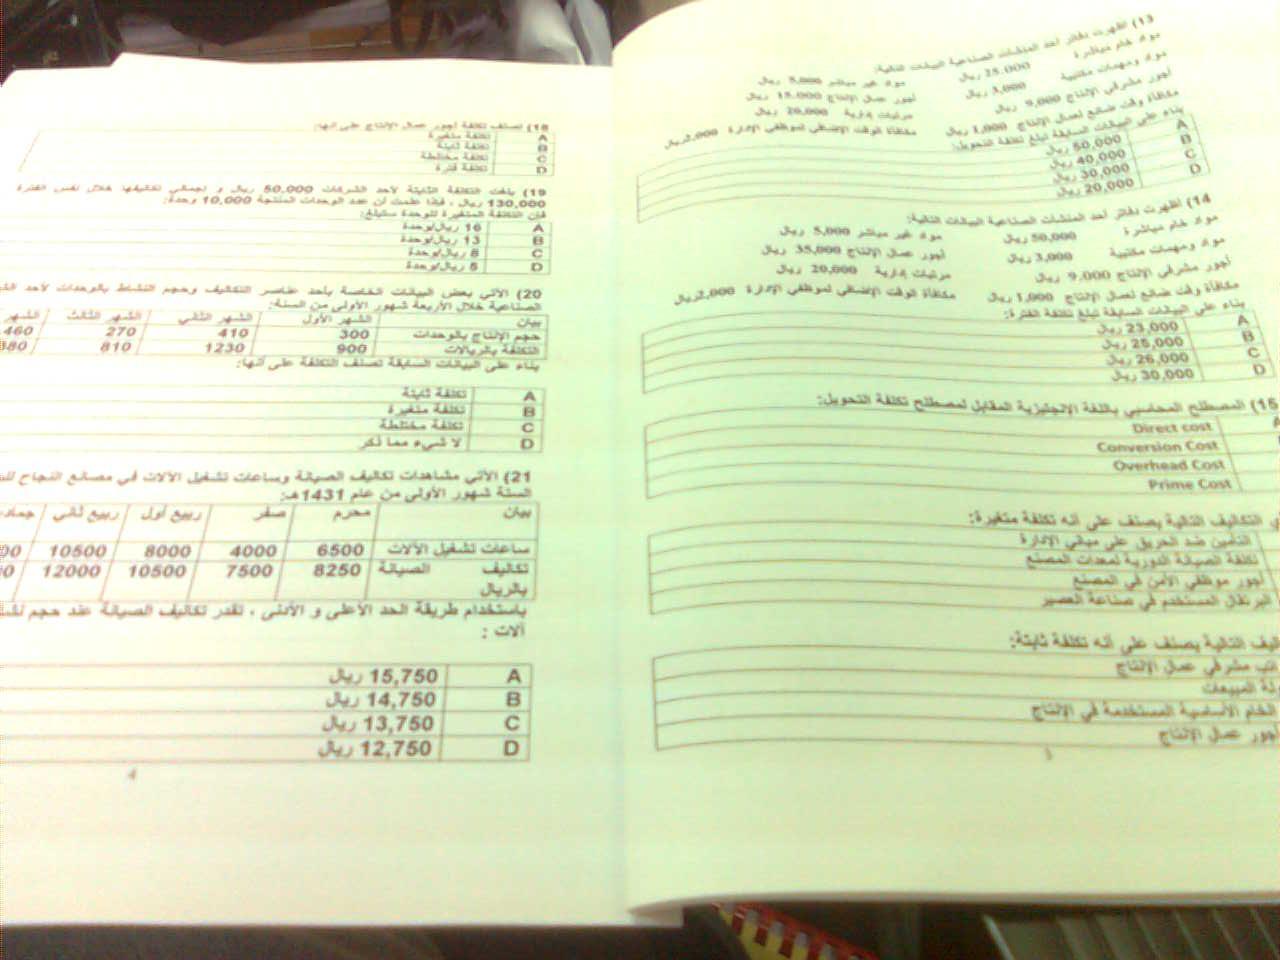 13) أظهرت دفاتر أحد المنشآت الصناعية البيانات التالية:
مواد خام مباشرة 25,000 ريال مواد غير مباشر 5,000 ريال
مواد ومهمات مكتبية 3,000 ريال أجور عمال الإنتاج 15,000 ريال
أجور مشرفي الإنتاج 9,000 ريال مرتبات إدارية 20,000 ريال
مكافأة وقت ضائع لعمال الإنتاج 1,000 ريال مكافأة الوقت الإضافي لموظفي الإدارة 2,000ريال
بناء على البيانات السابقة تبلغ تكلفة التحويل:
A 50,000 ريال
B 40,000 ريال
C 30,000 ريال
D 20,000 ريال
14) أظهرت دفاتر أحد المنشآت الصناعية البيانات التالية:
مواد خام مباشرة 50,000 ريال مواد غير مباشر 5,000 ريال
مواد ومهمات مكتبية 3,000 ريال أجور عمال الإنتاج 35,000 ريال
أجور مشرفي الإنتاج 9,000 ريال مرتبات إدارية 20,000 ريال
مكافأة وقت ضائع لعمال الإنتاج 1,000 ريال مكافأة الوقت الإضافي لموظفي الإدارة 2,000ريال
بناء على البيانات السابقة تبلغ تكلفة الفترة:
A 23,000 ريال
B 25,000 ريال
C 26,000 ريال
D 30,000 ريال
15) المصطلح المحاسبي باللغة الإنجليزية المقابل لمصطلح تكلفة التحويل:
A Direct cost
Conversion Cost
Overhead Cost
Prime Cost
التكاليف التالية يصنف على أنه تكلفة متغيرة:
التأمين ضد الحريق على مباني الإدارة
تكلفة الصيانة الدورية لمعدات المصنع
أجور موظفي الأمن في المصنع
البرتقال المستخدم في صناعة العصير
التالية يصنف على أنه تكلفة ثابتة:
مشرفي عمال الإنتاج
المبيعات
الخام الأساسية المستخدمة في الإنتاج
أجور عمال الإنتاج
3
18) تصنف تكلفة أجور عمال الإنتاج على أنها:
A تكلفة متغيرة
B تكلفة ثابتة
C تكلفة مختلطة
D تكلفة فترة
19) بلغت التكلفة الثابتة لأحد الشركات 50,000 ريال و إجمالي تكاليفها خلال نفس الفترة
130,000 ريال ، فإذا علمت أن عدد الوحدات المنتجة 10,000 وحدة:
فإن التكلفة المتغيرة للوحدة ستبلغ:
A 16 ريال/وحدة
B 13 ريال/وحدة
C 8 ريال/وحدة
D 5 ريال/وحدة
20) الآتي بعض البيانات الخاصة بأحد عناصر التكاليف وحجم النشاط بالوحدات لأحد
الصناعية خلال الأربعة شهور الأولى من السنة:
بيان الشهر الأول الشهر الثاني الشهر الثالث الشهر
حجم الإنتاج بالوحدات 300 410 270 460
التكلفة بالريالات 900 1230 810 380
بناء على البيانات السابقة تصنف التكلفة على أنها:
A تكلفة ثابتة
B تكلفة متغيرة
C تكلفة مختلطة
D لا شيء مما ذكر
21) الآتي مشاهدات تكاليف الصيانة وساعات تشغيل الآلات في مصانع النجاح
السنة شهور الأولى من عام 1431هـ:
بيان محرم صفر ربيع أول ربيع ثاني
ساعات تشغيل الآلات 6500 4000 8000 10500
تكاليف الصيانة 8250 7500 10500 12000
بالريال
باستخدام طريقة الحد الأعلى و الأدنى ، تقدر تكاليف الصيانة عند حجم
آلات :
A 15,750 ريال
B 14,750 ريال
C 13,750 ريال
D 12,750 ريال
4